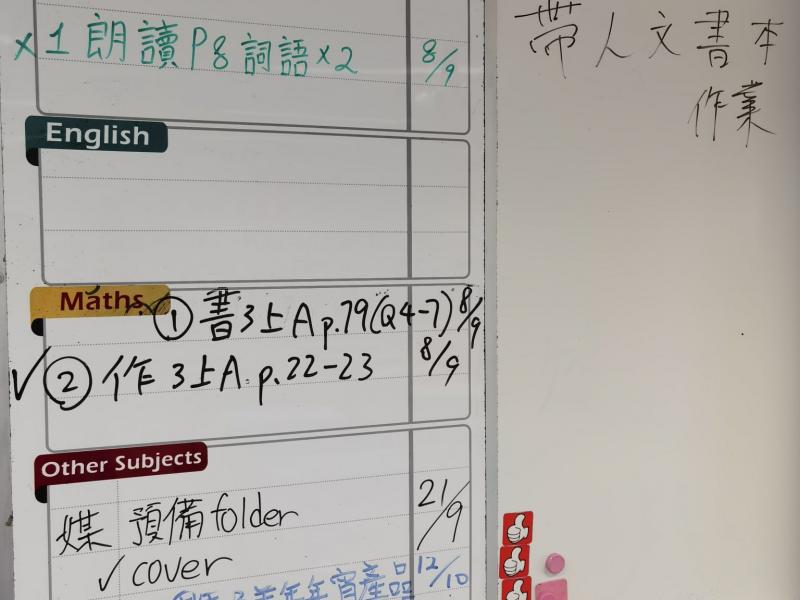 ×1 朗讀 P8 詞語×2 8/9
帶人文書本
作業
English
Maths
① 書3上A p.79(Q4-7) 8/9
✓② 作 3上A p.22-23 8/9
Other Subjects
媒 預備folder 21/9
✓cover
年宵產品 12/10